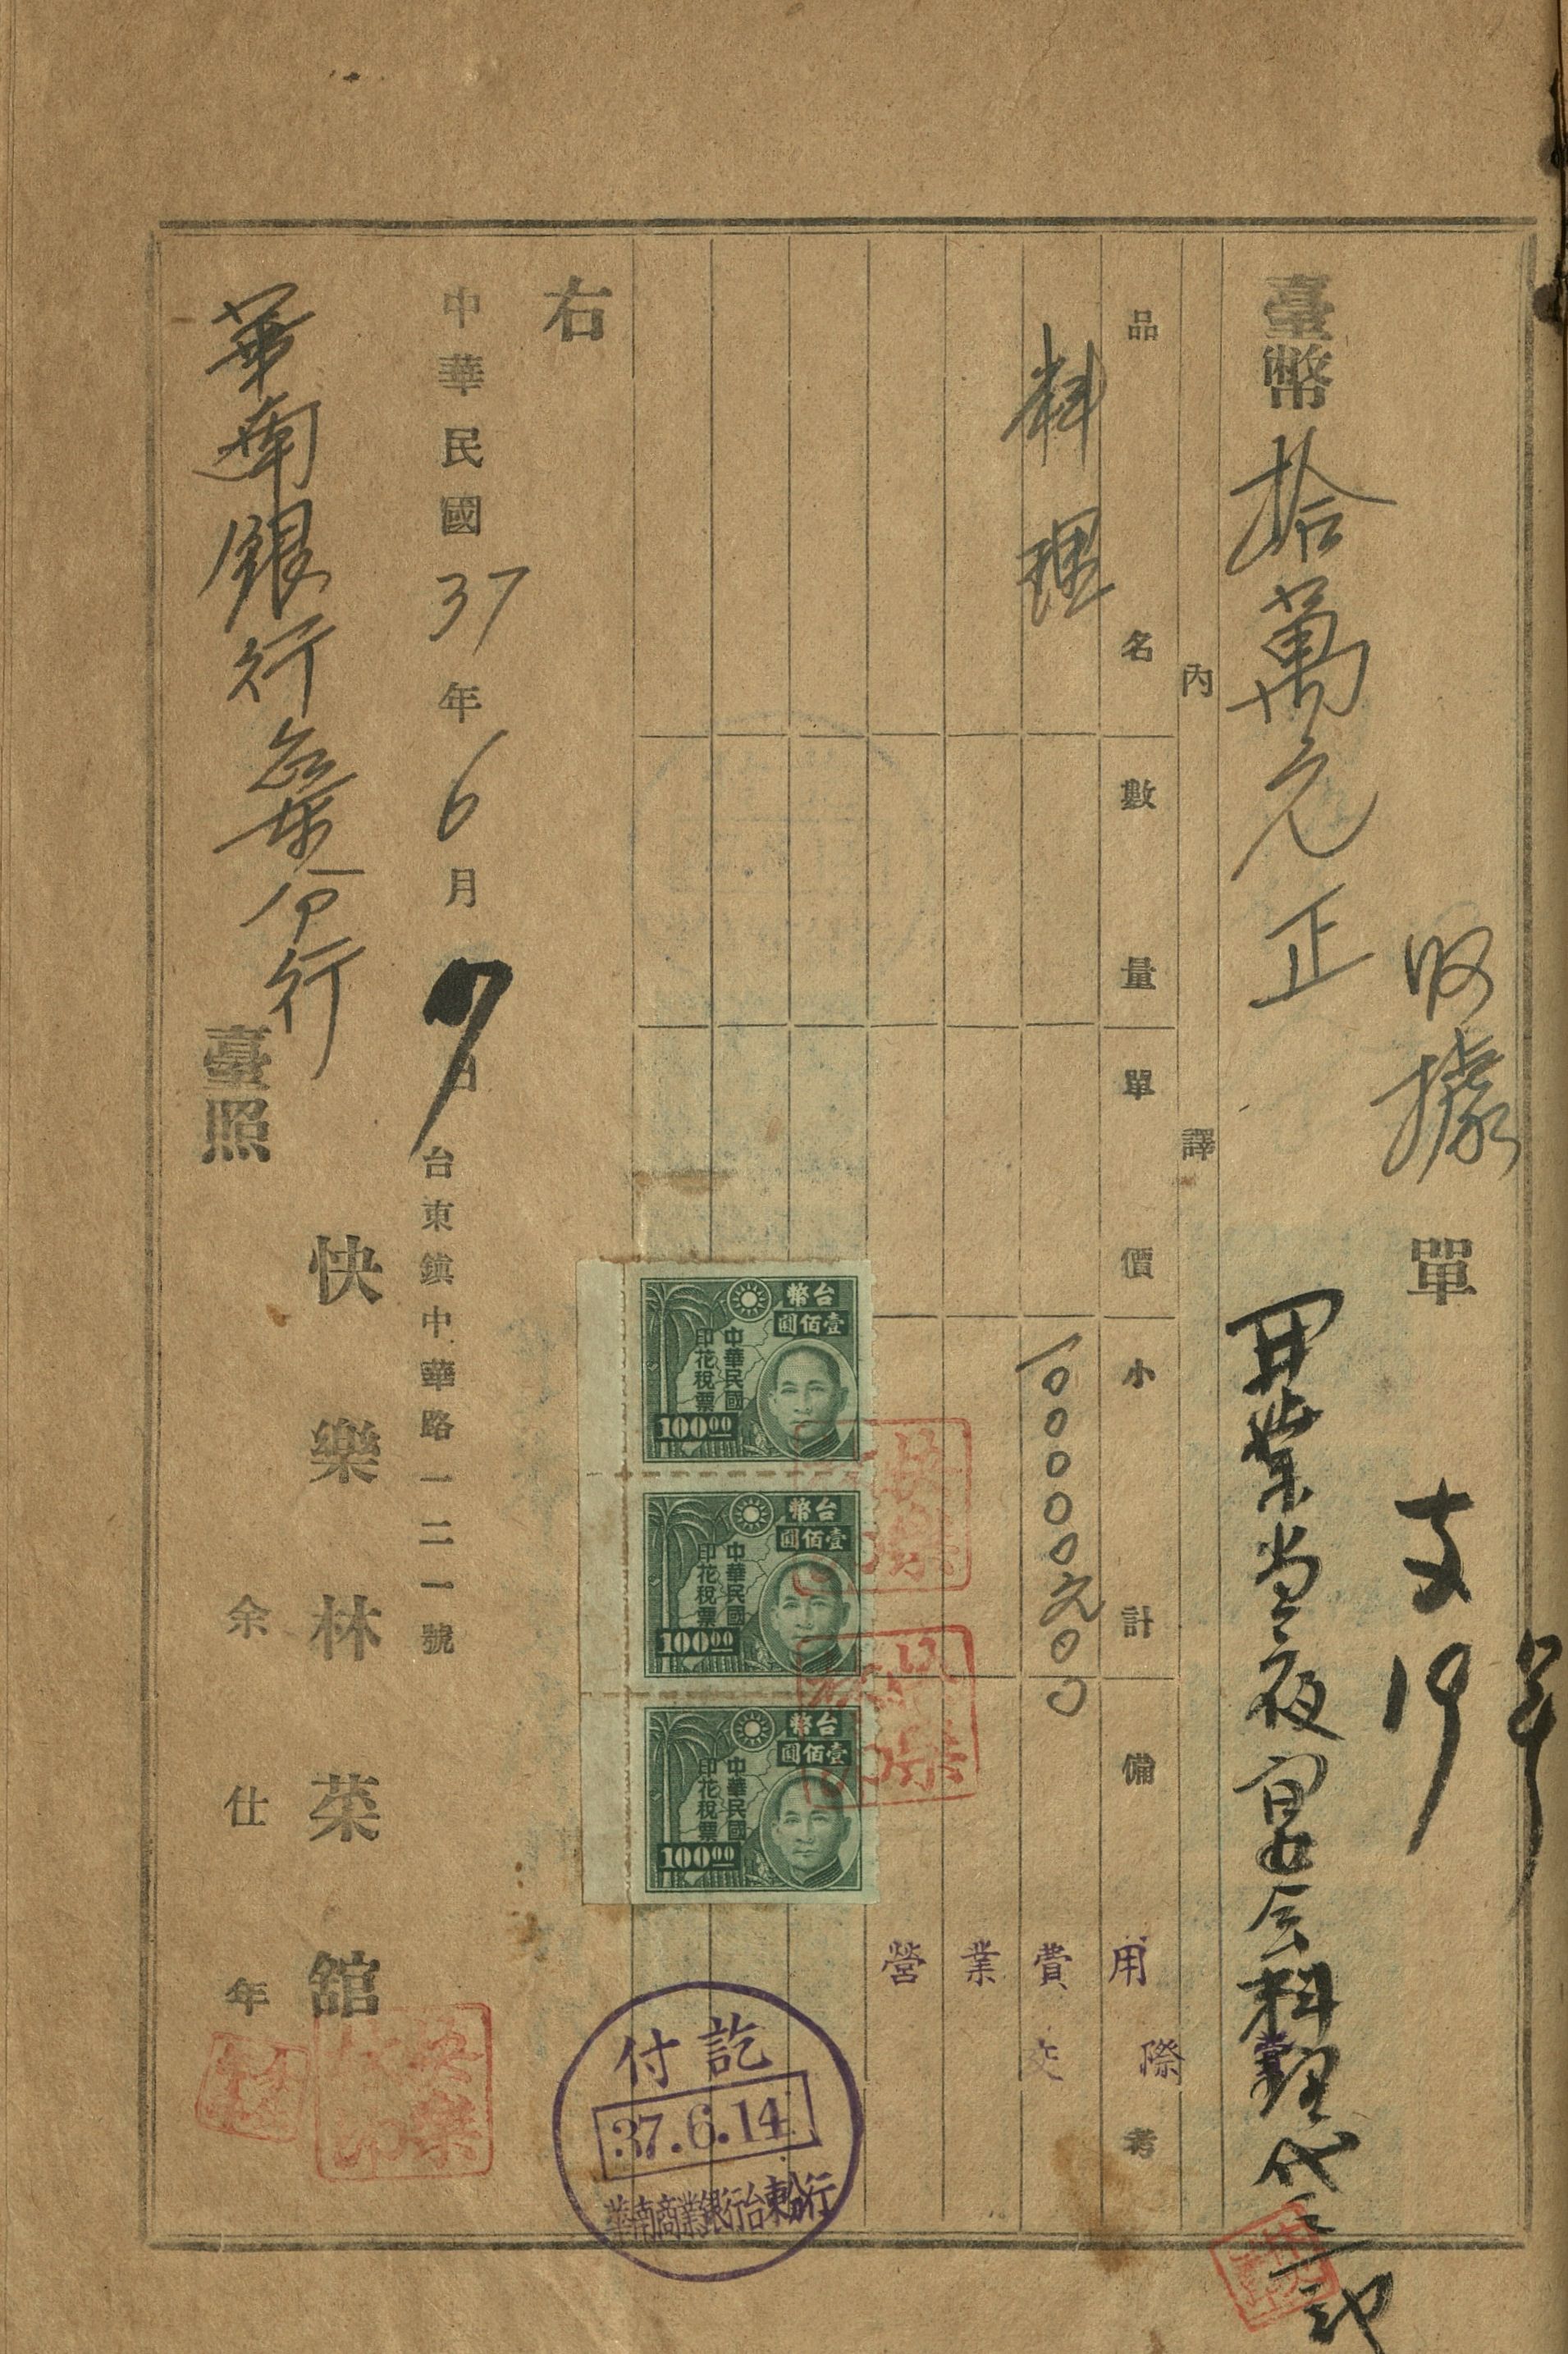 收據單
支19
臺幣拾萬元正
開業当夜宴会料理代
内譯
品名 數量 單價 小計 備考
料理 100000元00
營業費用
交際
台幣
壹佰圓
中華民國
印花稅票
100.00
台幣
壹佰圓
中華民國
印花稅票
100.00
台幣
壹佰圓
中華民國
印花稅票
100.00
付訖
37.6.14
華南商業銀行台東分行
右
中華民國37年6月7日
台東鎮中華路一二一號
快樂林菜舘
余仕年
華南銀行台東分行 臺照